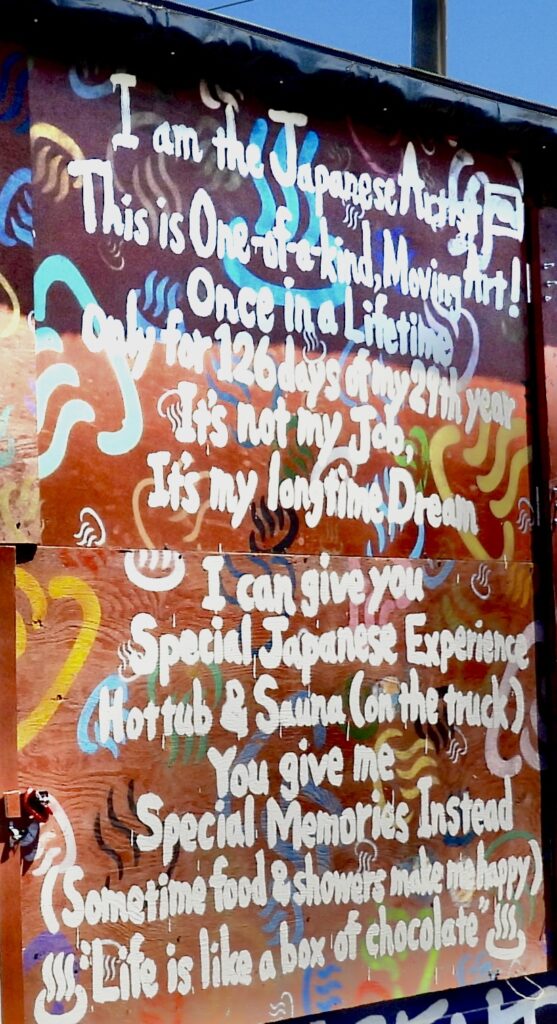 I am the Japanese Artist
This is One-of-a-kind, Moving Art!
Once in a Lifetime
only for 126 days of my 29th year
It's not my Job,
It's my longtime Dream
I can give you
Special Japanese Experience
Hottub & Sauna (on the truck)
You give me
Special Memories Instead
(Sometime food & showers make me happy)
"Life is like a box of chocolate"